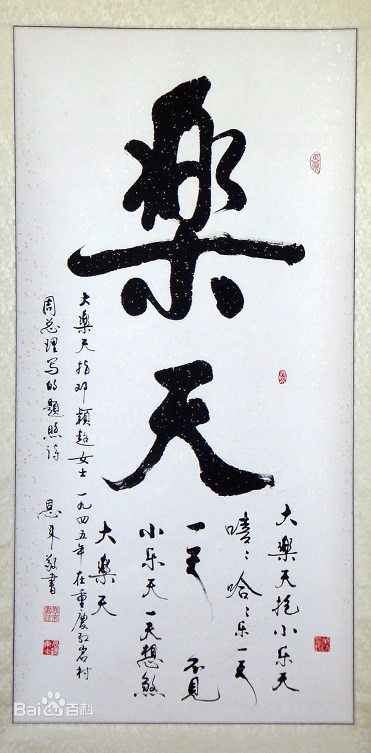 樂天
大樂天抱小乐天
嘻〻哈〻乐一天
一天不见
小乐天一天想煞
大樂天
大樂天指邓颖超女士一九四五年在重庆红岩村
周总理写的题照诗
敬書
Baidu百科